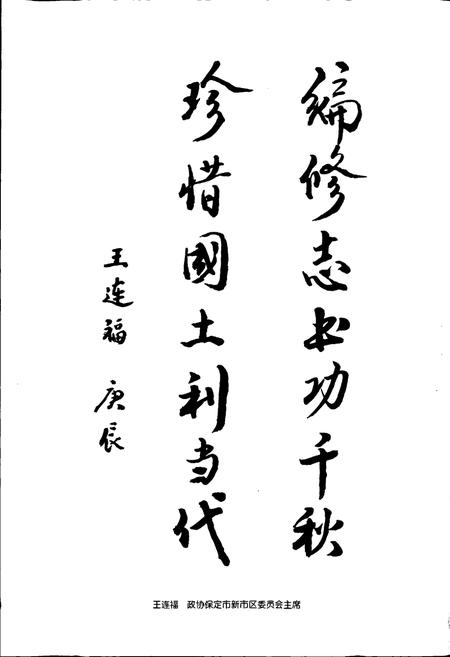 编修志书功千秋
珍惜國土利当代
王连福 庚辰
王连福 政协保定市新市区委员会主席